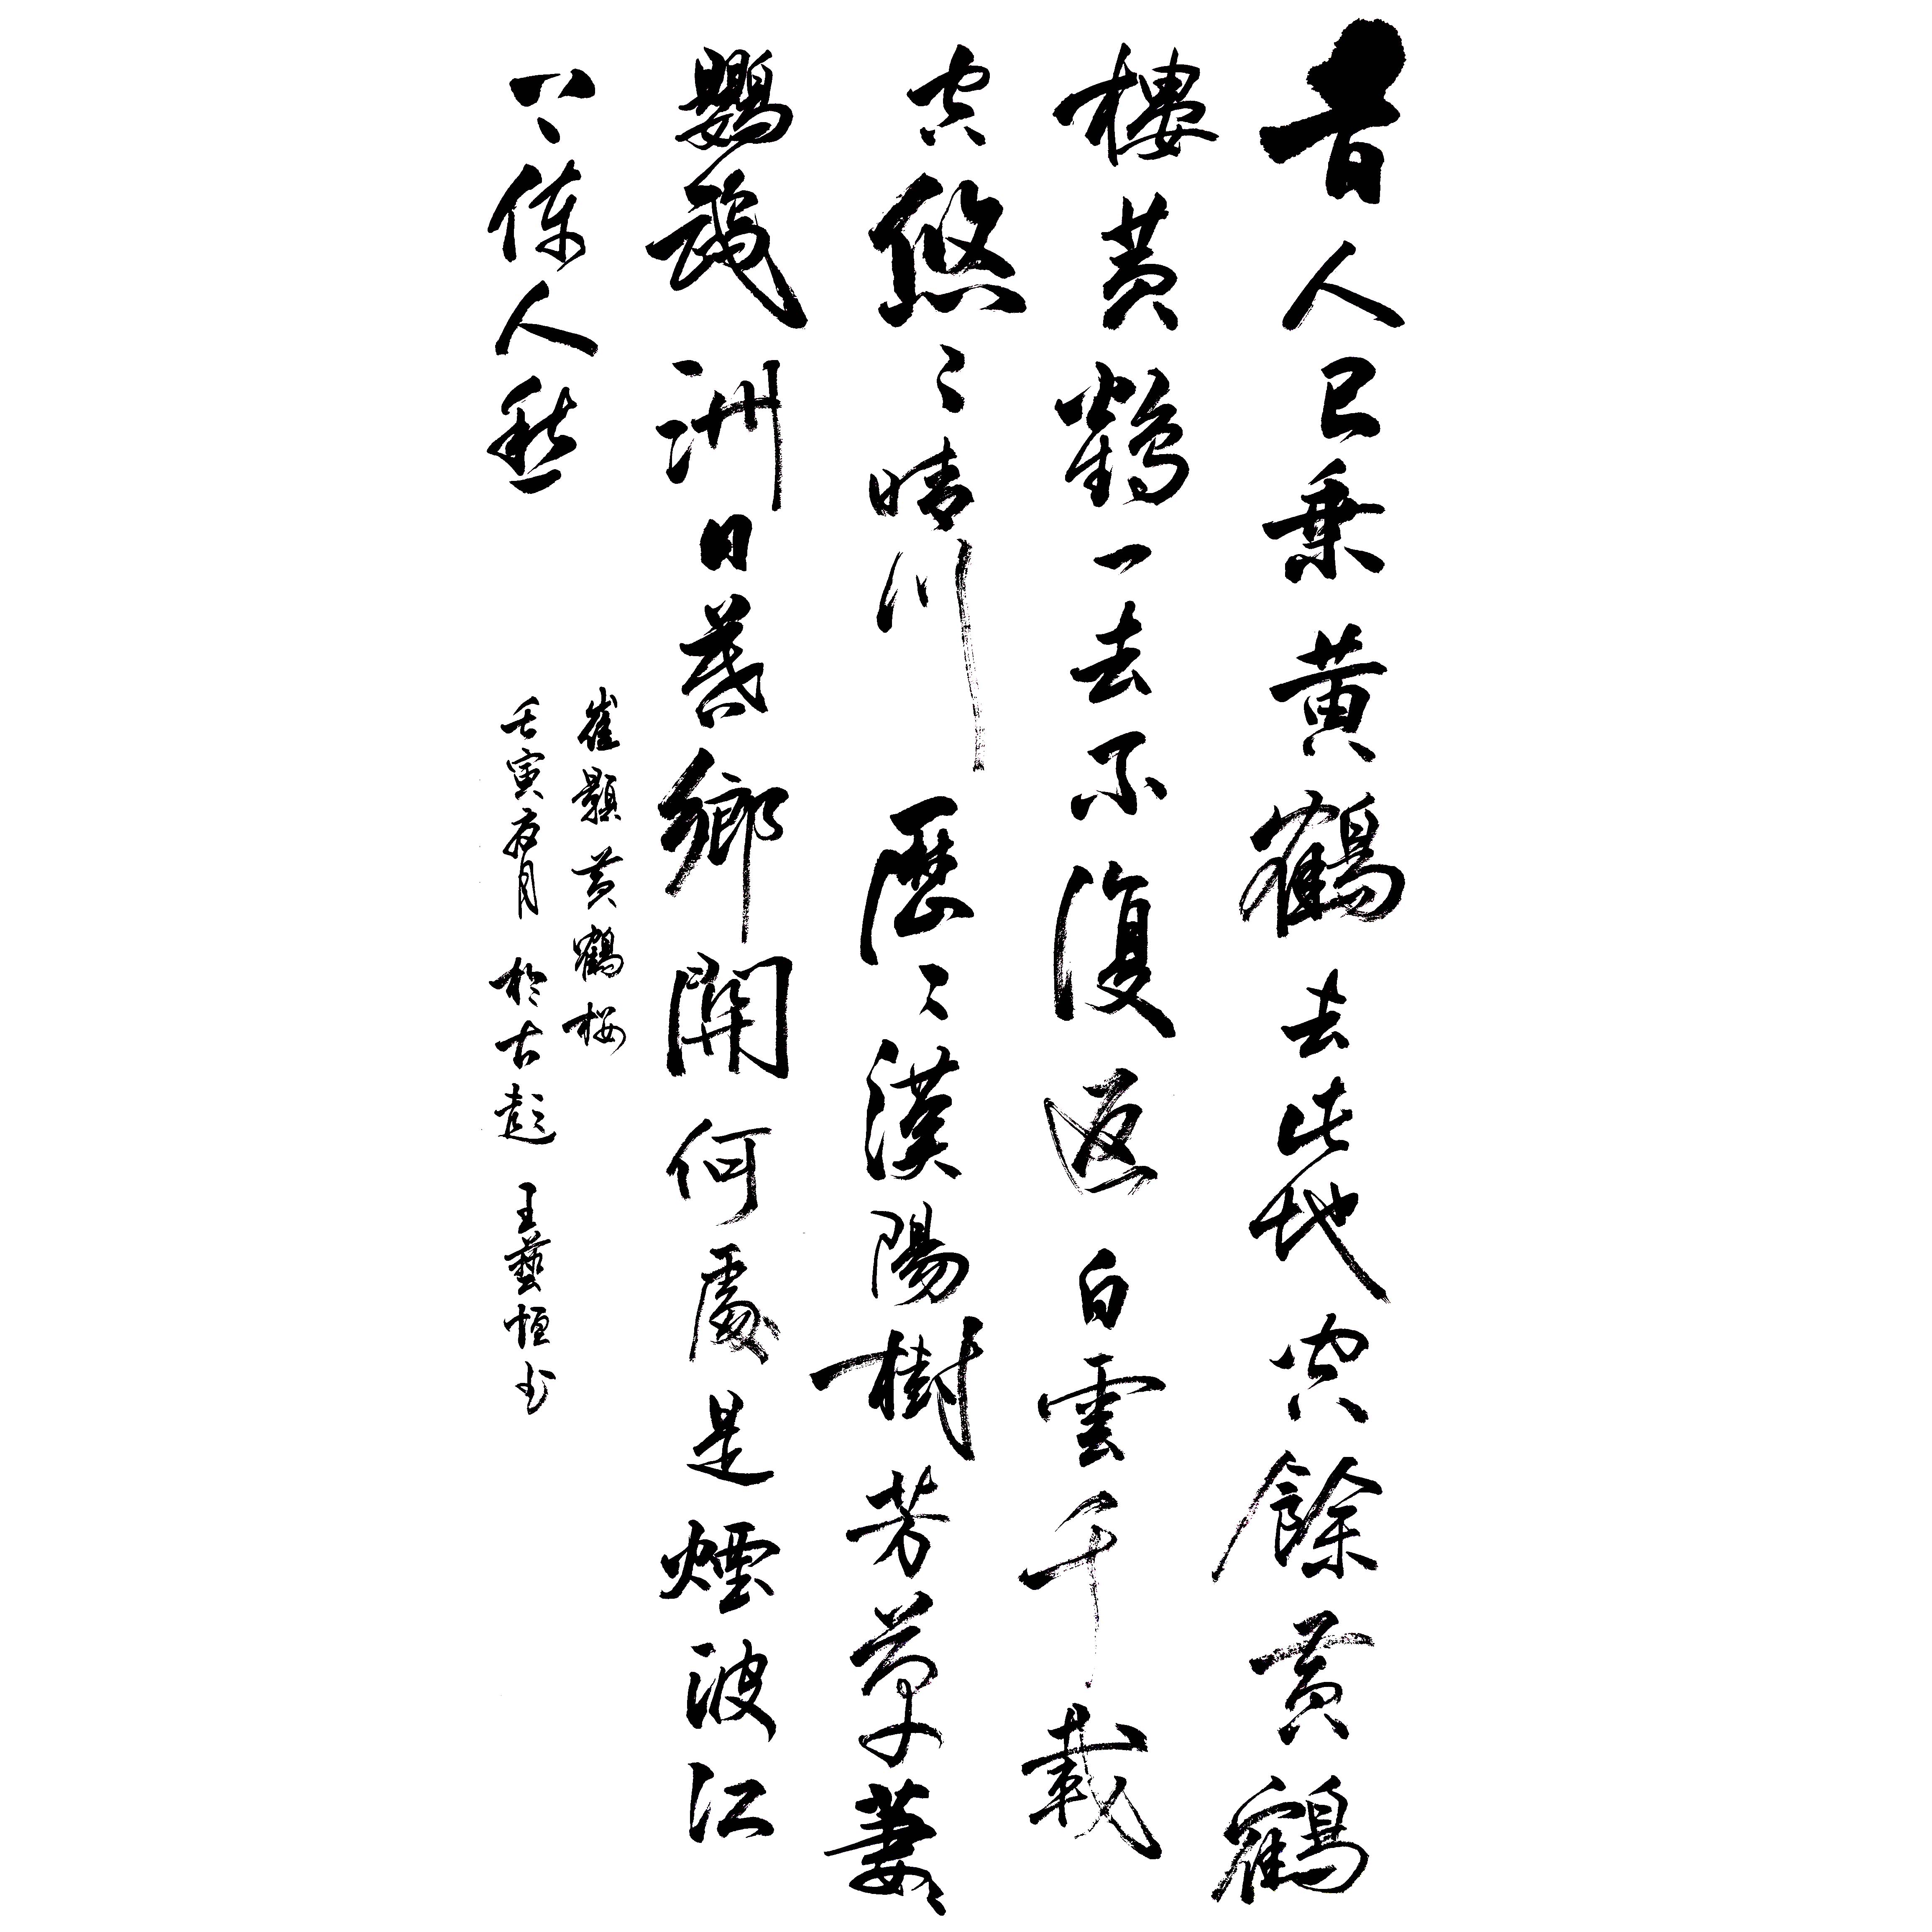 昔人已乘黄鶴去此地空餘黄鶴
樓黄鶴一去不復返白雲千載
空悠々晴川歷々漢陽樹芳草萋々
鸚鵡洲日暮鄉關何處是煙波江
上使人愁
崔顥黄鶴樓
壬寅夏月於古彭王藝恒書